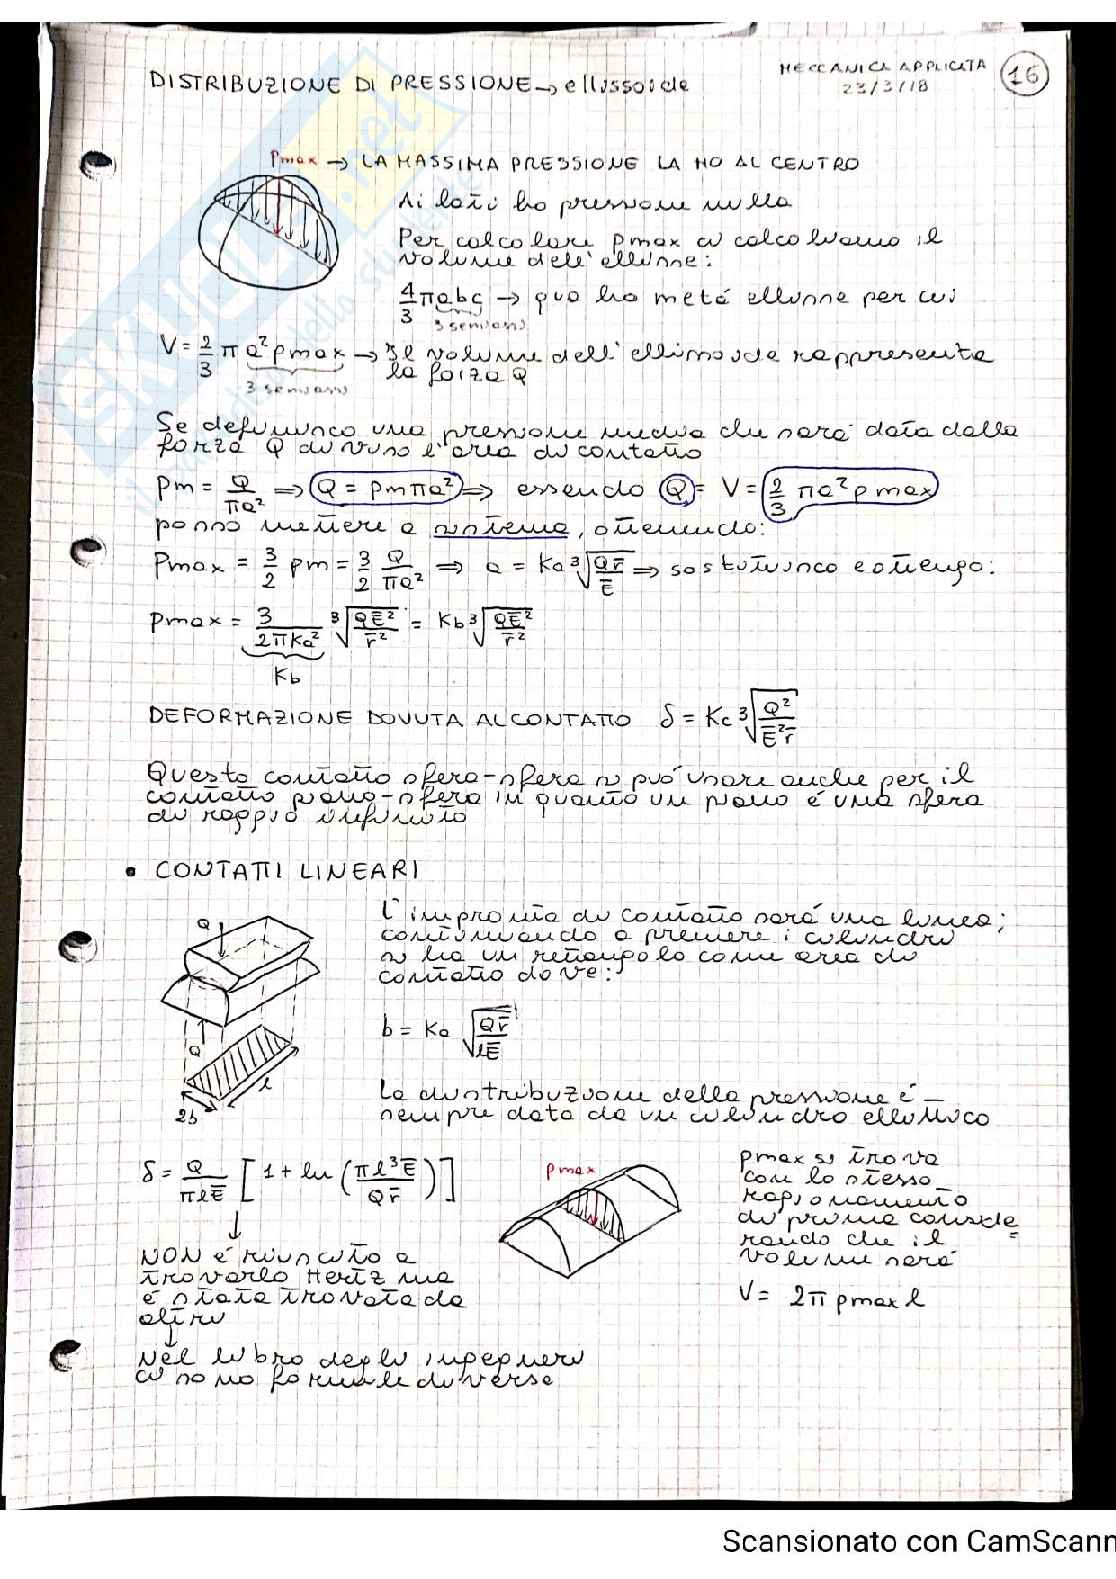 MECCANICA APPLICATA
23/3/18
16
DISTRIBUZIONE DI PRESSIONE → ellissoide
pmax → LA MASSIMA PRESSIONE LA HO AL CENTRO
Ai lati ho pressione nulla
Per calcolare pmax ci calcoliamo il
volume dell'ellisse:
4/3 πabc → qua ho metá ellisse per cui
3 semiassi
V = 2/3 π a² pmax → Il volume dell'ellissoide rappresenta
la forza Q
3 semiassi
Se definisco una pressione media che sará data dalla
forza Q diviso l'area di contatto
pm = Q/πa² ⇒ Q = pmπa² ⇒ essendo Q = V = 2/3 πa²pmax
posso mettere a sistema, ottenendo:
Pmax = 3/2 pm = 3/2 Q/πa² ⇒ a = Ka ∛(Qr̄/Ē) ⇒ sostituisco e ottengo:
pmax = 3/(2πKa²) ∛(QĒ²/r̄²) = Kb ∛(QĒ²/r̄²)
Kb
DEFORMAZIONE DOVUTA AL CONTATTO δ = Kc ∛(Q²/(Ē²r̄))
Questo contatto sfera-sfera si puó usare anche per il
contatto piano-sfera in quanto un piano é una sfera
di raggio infinito
• CONTATTI LINEARI
Q
Q
2b
l
L'impronta di contatto sará una linea;
continuando a premere i cilindri
si ha un rettangolo come area di
contatto dove:
b = Ka √(Qr̄/(lĒ))
La distribuzione della pressione é
sempre data da un cilindro ellittico
δ = Q/(πlĒ) [1 + ln (πl³Ē/(Qr̄))]
NON é riuscito a
trovarlo Hertz ma
é stata trovata da
altri
Nel libro degli ingegneri
ci sono formule diverse
pmax
pmax si trova
con lo stesso
ragionamento
di prima conside
rando che il
volume sará
V = 2π pmax l
Scansionato con CamScann